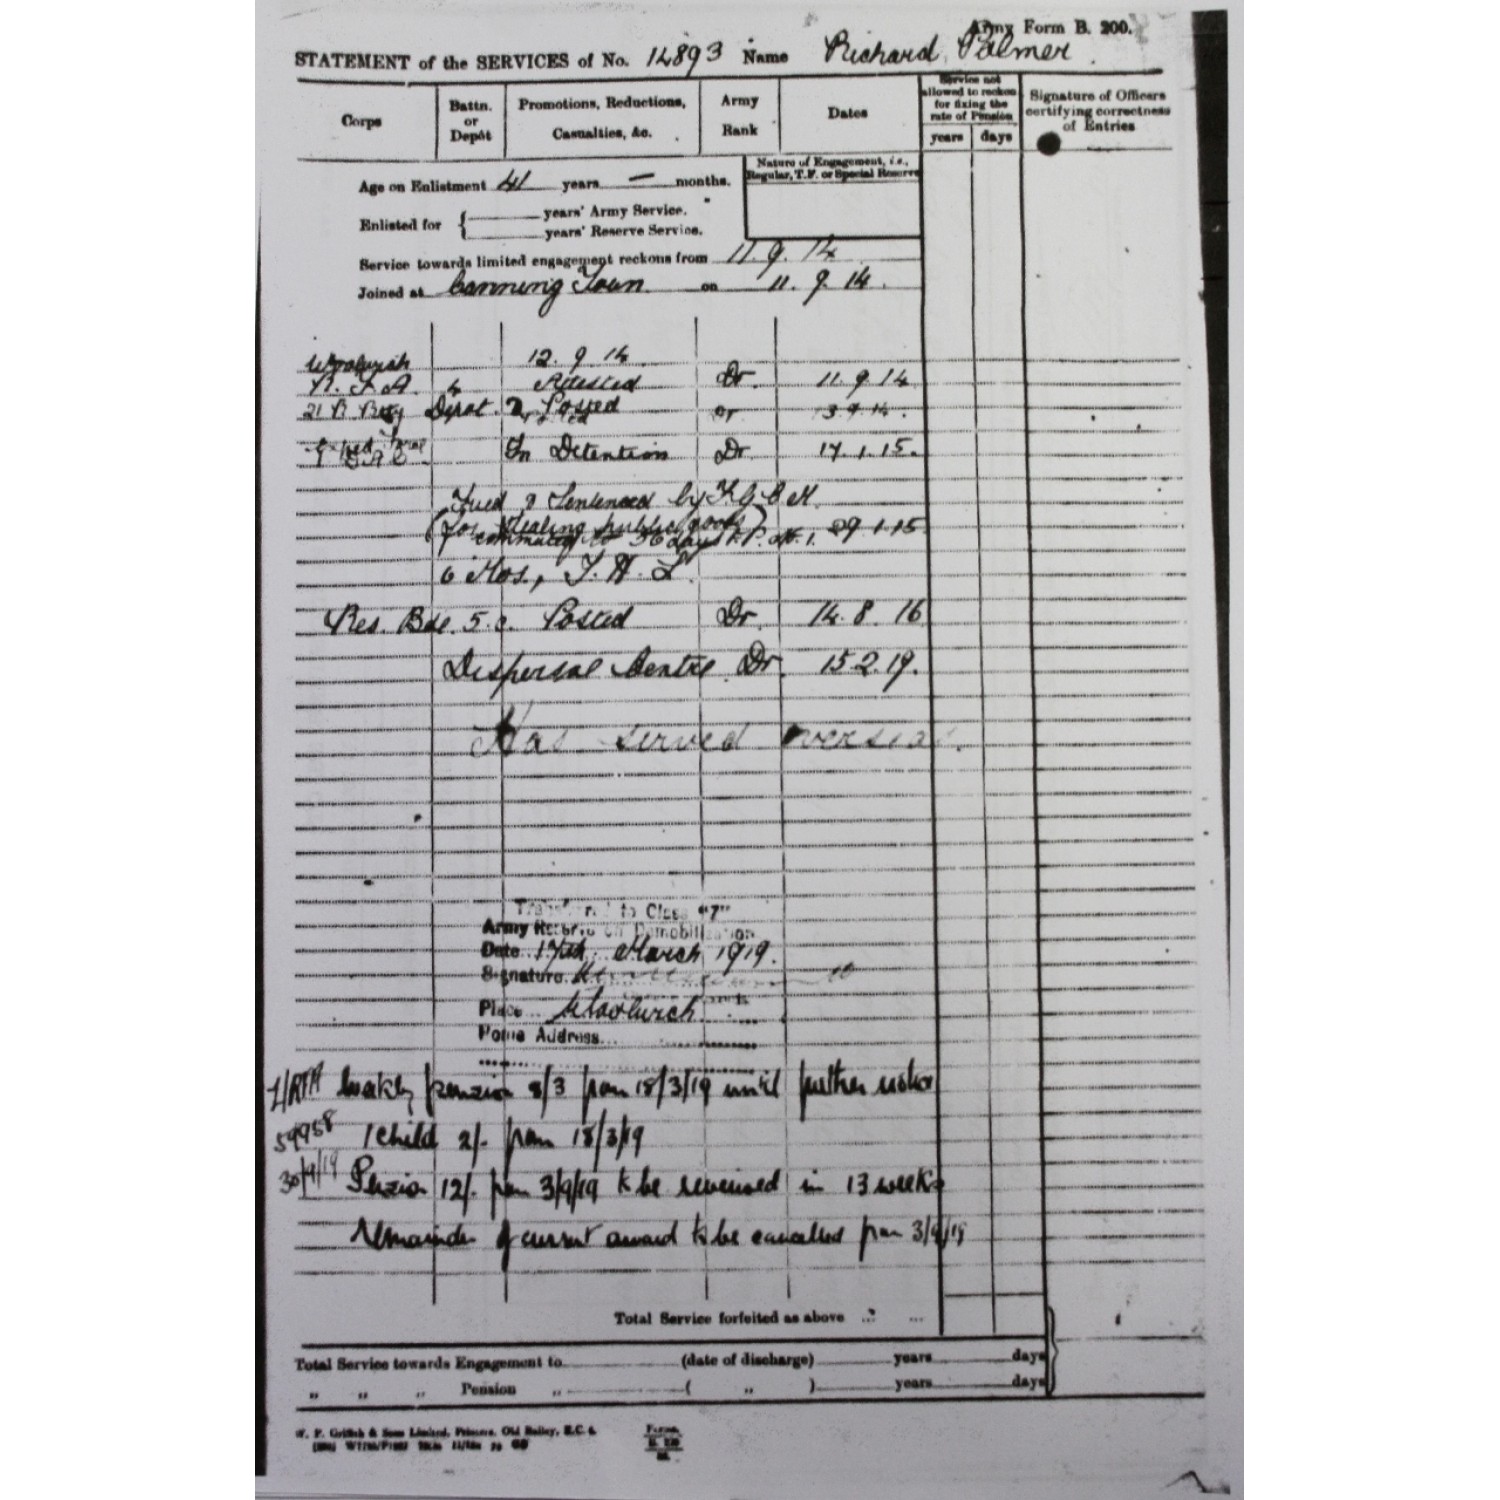 Army Form B. 200.
STATEMENT of the SERVICES of No. 14893 Name Richard Palmer
Corps
Battn. or Depôt
Promotions, Reductions, Casualties, &c.
Army Rank
Dates
Service not allowed to reckon for fixing the rate of Pension
years days
Signature of Officers certifying correctness of Entries
Nature of Engagement, i.e., Regular, T.F. or Special Reserve
Age on Enlistment 41 years — months.
Enlisted for { years' Army Service.
years' Reserve Service.
Service towards limited engagement reckons from 11. 9. 14
Joined at Canning Town on 11. 9. 14.
Woolwich 12. 9 14.
R. F. A. 4 Attested Dr. 11. 9 14
21 B Depot. Posted Dr 13 9 14.
In Detention Dr. 17. 1. 15.
Tried & Sentenced by F G C M.
(for stealing public goods) 29 1.15
commuted to days F. P. No. 1.
6 Mos, I. H. L.
Res. Bde. 5. c. Posted Dr. 14. 8. 16
Dispersal Centre Dr. 15.2.19.
Has served overseas.
Transferred to Class "Z"
Army Reserve on Demobilization
Date 17th March 1919.
Signature
Place Woolwich
Home Address
1/RFA Weakly pension 8/3 from 18/3/19 until further notice
59958 1 child 2/. from 18/3/19
30/9/19 Pension 12/. from 3/9/19 to be reviewed in 13 weeks
remainder of current award to be cancelled from 3/9/19
Total Service forfeited as above ... ...
Total Service towards Engagement to (date of discharge) years days
„ „ „ Pension „ ( „ ) years days
W. P. Griffith & Sons Limited, Printers, Old Bailey, E.C. 4.
Forms B. 200